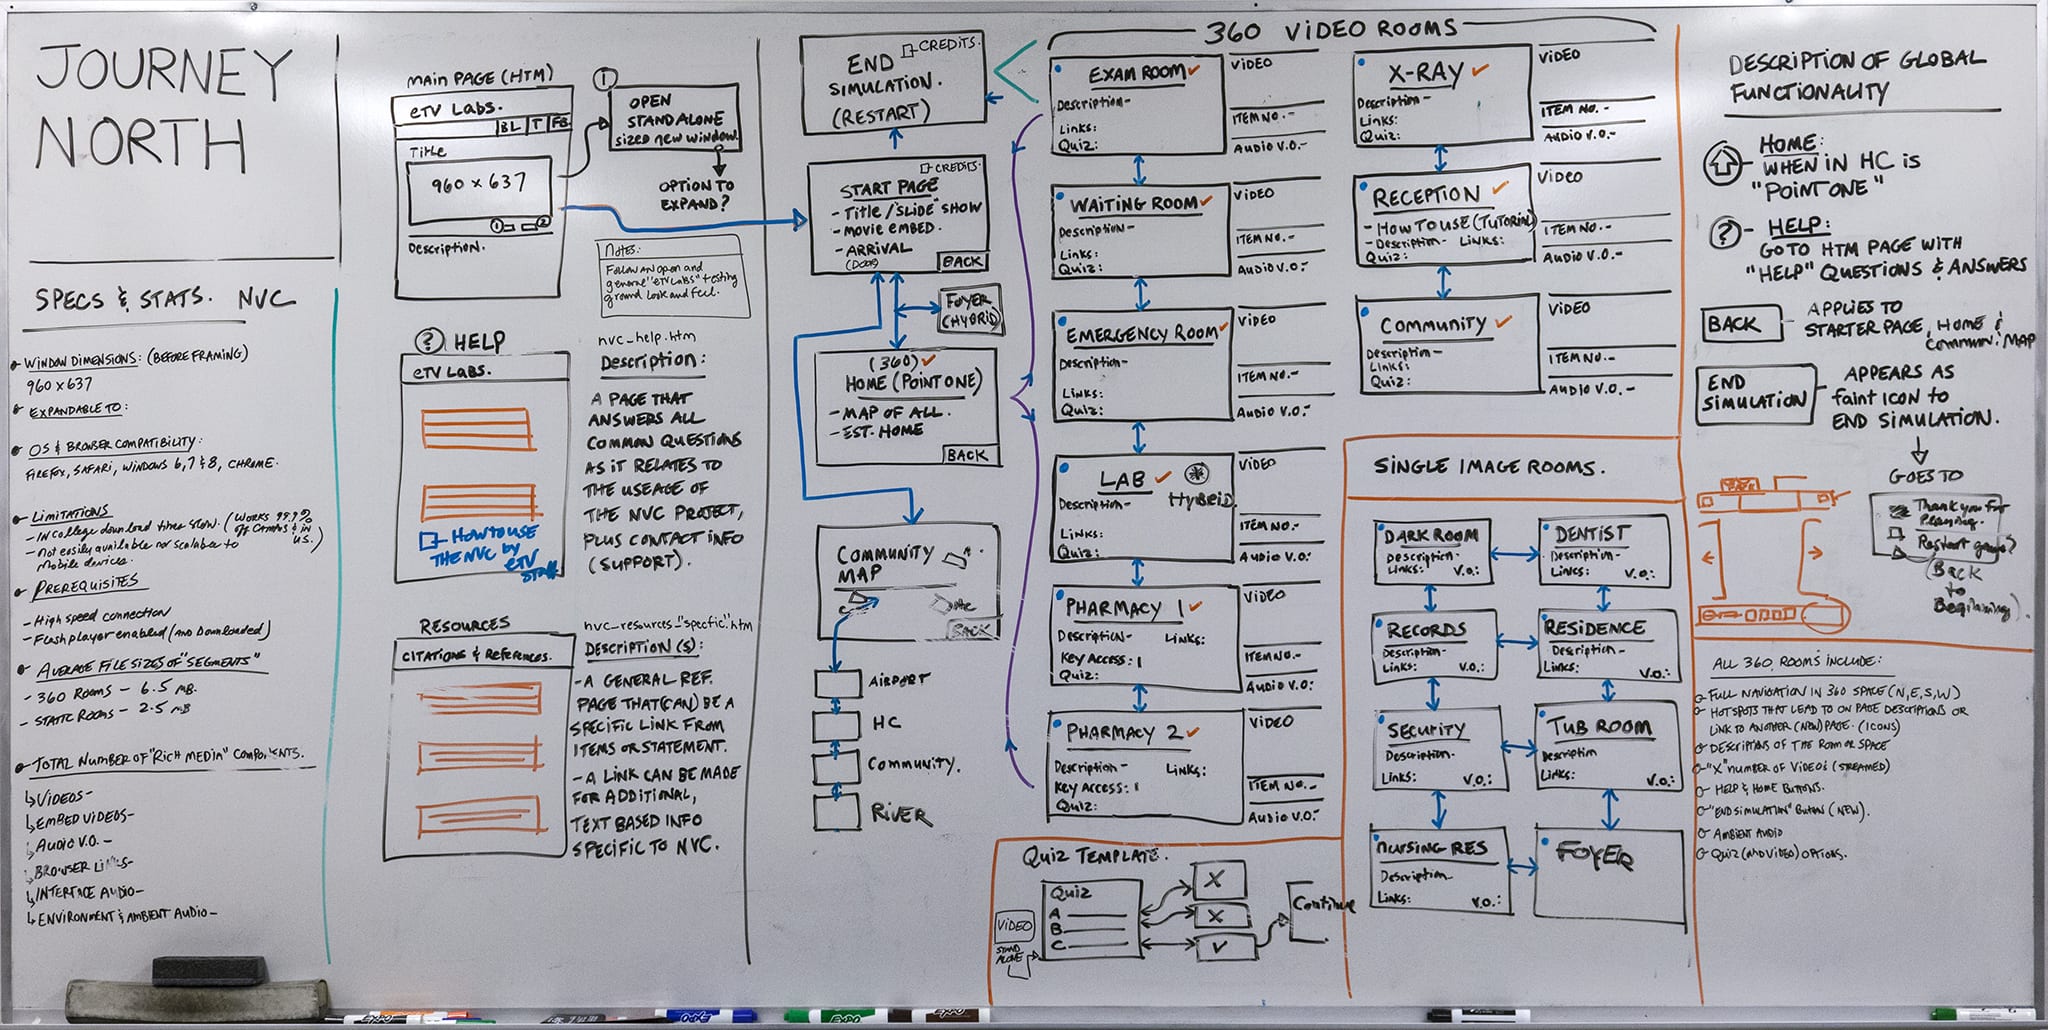 JOURNEY
NORTH
SPECS & STATS. NVC
WINDOW DIMENSIONS: (BEFORE FRAMING)
960 x 637
EXPANDABLE TO:
OS & BROWSER COMPATIBILITY:
FIREFOX, SAFARI, WINDOWS 6, 7 & 8, CHROME.
LIMITATIONS
- IN COLLEGE download times slow. (WORKS 99.9%
OFF CAMPUS & IN
U.S.)
- Not easily available nor scalable to
Mobile devices.
PREREQUISITES
- High speed connection
- Flash player enabled (AND Downloaded)
AVERAGE FILE SIZES OF "SEGMENTS"
- 360 ROOMS - 6.5 MB.
- STATIC ROOMS - 2.5 MB
TOTAL NUMBER OF "RICH MEDIA" COMPONENTS.
VIDEOS-
EMBED VIDEOS-
AUDIO V.O. -
BROWSER LINKS-
INTERFACE AUDIO-
ENVIRONMENT & AMBIENT AUDIO-
MAIN PAGE (HTM)
eTV Labs.
BL T FB
Title
960 x 637
1 2
Description.
1
OPEN
STANDALONE
sized new window.
OPTION TO
EXPAND?
NOTES:
Follow an open and
general "eTV Labs" testing
ground look and feel.
? HELP
eTV LABS.
HOW TO USE
THE NVC by
eTV
Staff
nvc_help.htm
Description:
A PAGE THAT
ANSWERS ALL
COMMON QUESTIONS
AS IT RELATES TO
THE USEAGE OF
THE NVC PROJECT,
PLUS CONTACT INFO
(SUPPORT).
RESOURCES
CITATIONS & REFERENCES.
nvc_resources_"specific".htm
DESCRIPTION(S):
- A GENERAL REF.
PAGE THAT (CAN) BE A
SPECIFIC LINK FROM
ITEMS OR STATEMENT.
- A LINK CAN BE MADE
FOR ADDITIONAL,
TEXT BASED INFO
SPECIFIC TO NVC.
CREDITS.
END
SIMULATION.
(RESTART)
CREDITS.
START PAGE
- Title/"SLIDE" SHOW
- MOVIE EMBED.
- ARRIVAL
(DOOR)
BACK
FOYER
(HYBRID)
(360) ✓
HOME (POINT ONE)
- MAP OF ALL.
- EST. HOME
BACK
COMMUNITY
MAP
BACK
AIRPORT
HC
COMMUNITY.
RIVER
360 VIDEO ROOMS
EXAM ROOM ✓
Description-
Links:
Quiz:
VIDEO
ITEM NO.-
AUDIO V.O.-
WAITING ROOM ✓
Description-
Links:
Quiz:
VIDEO
ITEM NO.-
AUDIO V.O:-
EMERGENCY ROOM ✓
Description-
Links:
Quiz:
VIDEO
ITEM NO.-
AUDIO V.O.-
LAB ✓ HYBRID.
Description-
Links:
Quiz:
VIDEO
ITEM NO.-
AUDIO V.O.-
PHARMACY 1 ✓
Description- Links:
Key Access: 1
Quiz:
VIDEO
ITEM NO.-
AUDIO V.O.-
PHARMACY 2 ✓
Description- Links:
Key Access: 1
Quiz:
VIDEO
ITEM NO.-
AUDIO V.O.-
X-RAY ✓
Description-
Links:
Quiz:
VIDEO
ITEM NO.-
AUDIO V.O.-
RECEPTION ✓
- HOW TO USE (TUTORIAL)
- Description- Links:
Quiz:
VIDEO
ITEM NO.-
AUDIO V.O.-
COMMUNITY ✓
Description-
Links:
Quiz:
VIDEO
ITEM NO.-
AUDIO V.O.-
SINGLE IMAGE ROOMS.
DARK ROOM
Description-
Links: V.O.:
DENTIST
Description-
Links: V.O.:
RECORDS
Description-
Links: V.O.:
RESIDENCE
Description-
Links: V.O.:
SECURITY
Description-
Links: V.O.:
TUB ROOM
Description
Links: V.O.:
NURSING RES
Description-
Links: V.O.:
FOYER
QUIZ TEMPLATE.
Quiz
A
B
C
VIDEO
STAND
ALONE
X
X
✓
Continue
DESCRIPTION OF GLOBAL
FUNCTIONALITY
HOME:
- WHEN IN HC IS
"POINT ONE"
? - HELP:
GO TO HTM PAGE WITH
"HELP" QUESTIONS & ANSWERS
BACK - APPLIES TO
STARTER PAGE, HOME &
COMMUN. MAP
END
SIMULATION - APPEARS AS
faint ICON to
END SIMULATION.
GOES TO
Thank you for
Playing.
Restart game?
(Back
to
Beginning).
ALL 360 ROOMS INCLUDE:
FULL NAVIGATION IN 360 SPACE (N, E, S, W)
HOTSPOTS THAT LEAD TO ON PAGE DESCRIPTIONS OR
LINK TO ANOTHER (NEW) PAGE. (ICONS)
DESCRIPTIONS OF THE ROOM OR SPACE
"X" NUMBER OF VIDEOS (STREAMED)
HELP & HOME BUTTONS.
"END SIMULATION" BUTTON (NEW).
AMBIENT AUDIO
QUIZ (AND VIDEO) OPTIONS.
EXPO
EXPO
EXPO